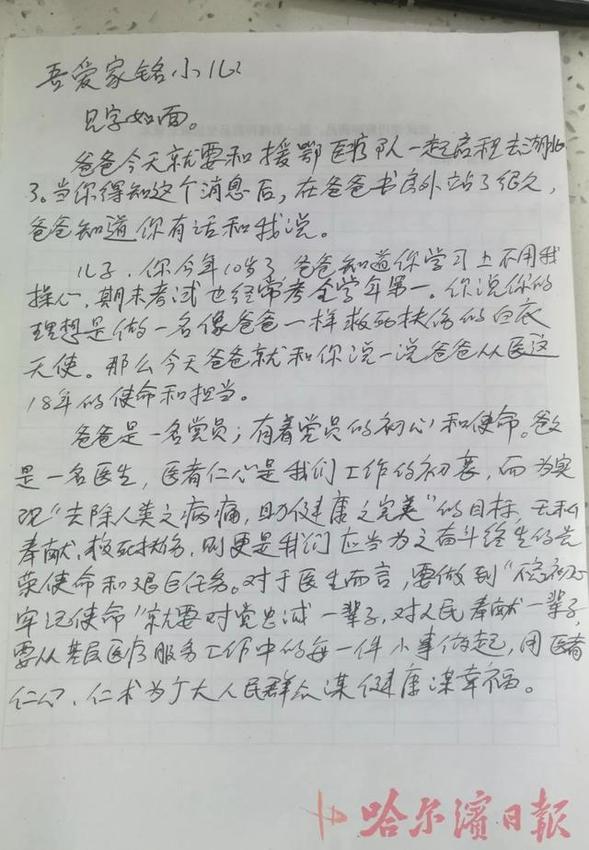 吾爱家铭小儿:
见字如面。
爸爸今天就要和援鄂医疗队一起启程去湖北
了。当你得知这个消息后，在爸爸书房外站了很久，
爸爸知道你有话和我说。
儿子，你今年10岁了，爸爸知道你学习上不用我
操心，期末考试也经常考全学年第一。你说你的
理想是做一名像爸爸一样救死扶伤的白衣
天使。那么今天爸爸就和你说一说爸爸从医这
18年的使命和担当。
爸爸是一名党员；有着党员的初心和使命。爸爸
是一名医生，医者仁心是我们工作的初衷，而为实
现“去除人类之病痛，助健康之完美”的目标，无私
奉献、救死扶伤，则更是我们应当为之奋斗终生的光
荣使命和艰巨任务。对于医生而言，要做到“不忘初心
牢记使命”就要对党忠诚一辈子，对人民奉献一辈子，
要从基层医疗服务工作中的每一件小事做起，用医者
仁心、仁术为广大人民群众谋健康谋幸福。
哈尔滨日报